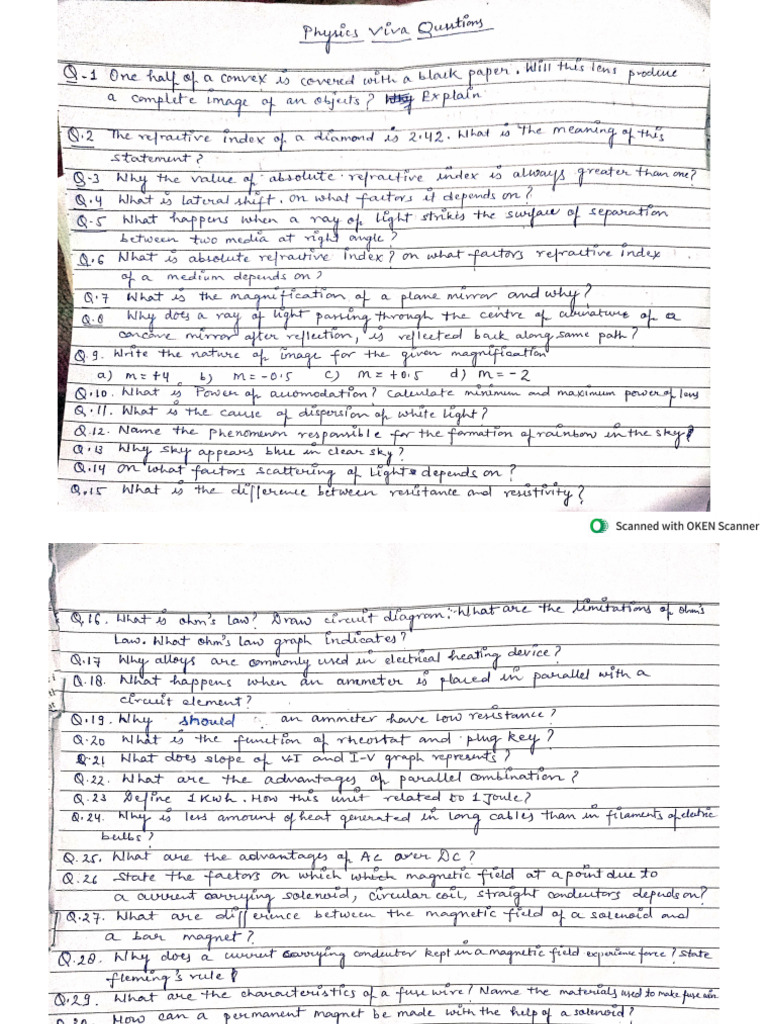 Physics Viva Questions
Q-1 One half of a convex is covered with a black paper. Will this lens produce
a complete image of an objects? Explain
Q.2 The refractive index of a diamond is 2.42. What is the meaning of this
statement?
Q-3 Why the value of absolute refractive index is always greater than one?
Q.4 What is lateral shift. On what factors it depends on?
Q-5 What happens when a ray of light strikes the surface of separation
between two media at right angle?
Q.6 What is absolute refractive index? on what factors refractive index
of a medium depends on?
Q.7 What is the magnification of a plane mirror and why?
Q.8 Why does a ray of light passing through the centre of curvature of a
concave mirror after reflection, is reflected back along same path?
Q.9. Write the nature of image for the given magnification
a) m = +4 b) m = -0.5 c) m = +0.5 d) m = -2
Q.10. What is Power of accomodation? Calculate minimum and maximum power of lens
Q.11. What is the cause of dispersion of white light?
Q.12. Name the phenomenon responsible for the formation of rainbow in the sky?
Q.13 Why sky appears blue in clear sky?
Q.14 on what factors scattering of light depends on?
Q.15 What is the difference between resistance and resistivity?
Scanned with OKEN Scanner
Q.16. What is ohm's law? Draw circuit diagram. What are the limitations of ohm's
Law. What ohm's law graph indicates?
Q.17 Why alloys are commonly used in electrical heating device?
Q.18. What happens when an ammeter is placed in parallel with a
circuit element?
Q.19. Why should an ammeter have low resistance?
Q.20 What is the function of rheostat and plug key?
Q.21 What does slope of V-I and I-V graph represents?
Q.22. What are the advantages of parallel combination?
Q.23 Define 1 Kwh. How this unit related to 1 Joule?
Q.24. Why is less amount of heat generated in long cables than in filaments of eletric
bulbs?
Q.25. What are the advantages of AC over DC?
Q.26 State the factors on which which magnetic field at a point due to
a current carrying solenoid, circular coil, straight conductors depends on?
Q.27. What are difference between the magnetic field of a solenoid and
a bar magnet?
Q.28. Why does a current carrying conductor kept in a magnetic field experience force? State
fleming's rule?
Q.29. What are the characteristics of a fuse wire? Name the materials used to make fuse wire
Q.30. How can a permanent magnet be made with the help of a solenoid?